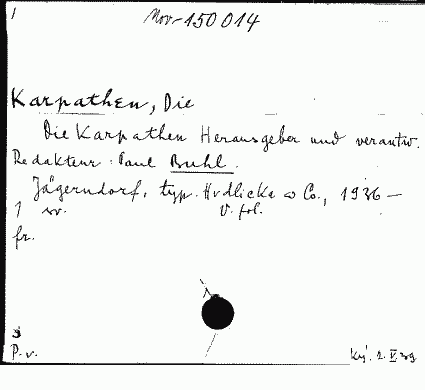 1
Nov-150014
Karpathen, Die
Die Karpathen Herausgeber und verantw.
Redakteur: Paul Buhl.
Jägerndorf, typ. Hrdlicka & Co., 1936 —
1 sv. V. fol.
fr.
P. v.